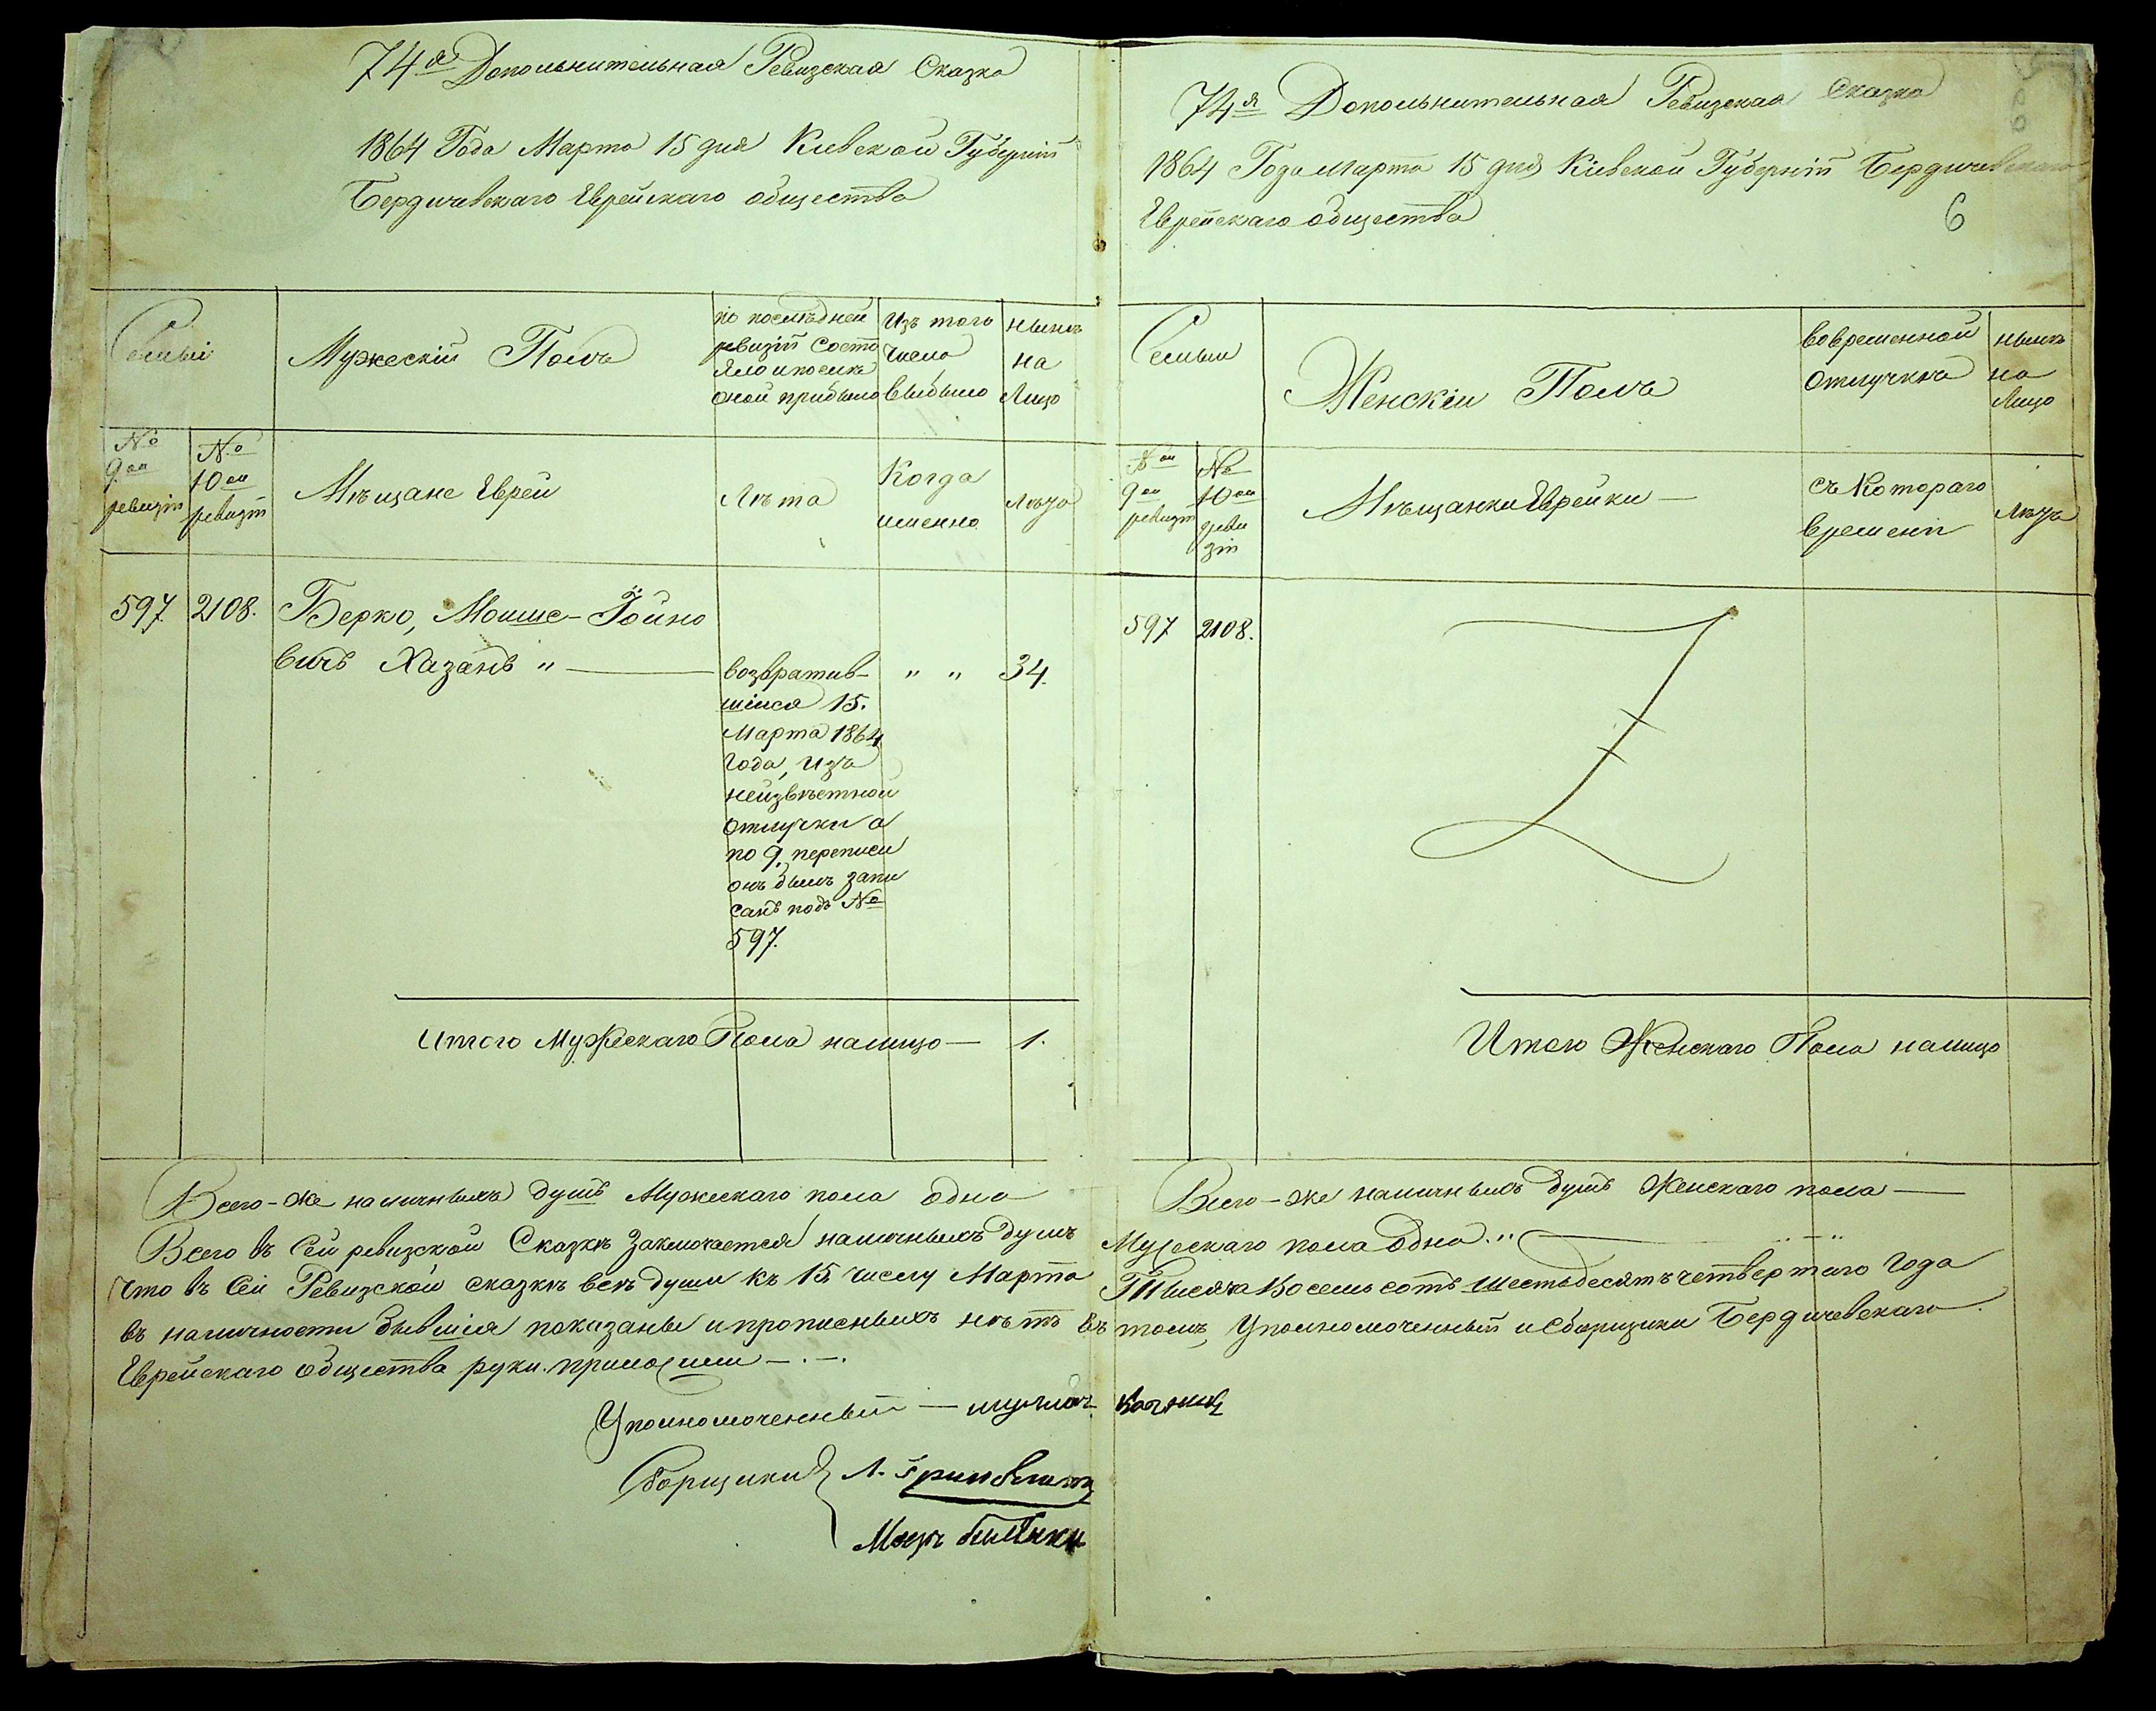 74я Дополнительная Ревизская Сказка
1864 Года Марта 15 дня Киевской Губерніи
Бердичевскаго Еврейскаго общества
Семьи
Мужескій Полъ
по последней ревизіи состояло и после оной прибыло
Изъ того числа выбыло
ныне на Лицо
№ 9ой ревизіи
№ 10ой ревизіи
Мѣщане Евреи
Лѣта
Когда именно
Лѣта
597.
2108.
Берко, Мошие-Іойно
вичъ Хазанъ „
возвратив-
шийся 15.
Марта 1864
Года, изъ
неизвѣстной
отлучки а
по 9. переписи
онъ былъ запи
санъ подъ №
597.
„ „
34.
Итого Мужескаго Пола налицо — 1.
74я Дополнительная Ревизская Сказка
1864 Года Марта 15 дня Кіевской Губерніи Бердичевскаго
Еврейскаго общества
6
Семьи
Женскій Полъ
во временной отлучкѣ
ныне на Лицо
9ой ревизіи
№ 10ой ревизіи
Мѣщанки Еврейки —
съ Котораго времени
Лѣта
597
2108.
Итого Женскаго Пола налицо
Всего-же наличныхъ душъ Мужескаго пола одна
Всего-же наличныхъ душъ Женскаго пола —
Всего въ Сей ревизской Сказкѣ Заключается наличныхъ душъ Мужескаго пола Одна. „
Что въ Сей Ревизской сказкѣ всѣ души къ 15 числу Марта Тысяча Восемь сотъ шестьдесятъ четвертаго Года
въ наличности бывшія показаны и прописныхъ нѣтъ въ томъ, Уполномоченный и Сборщики Бердичевскаго
Еврейскаго общества руки приложили —.—.
Уполномоченный —
Сборщики Л. Гринблатъ